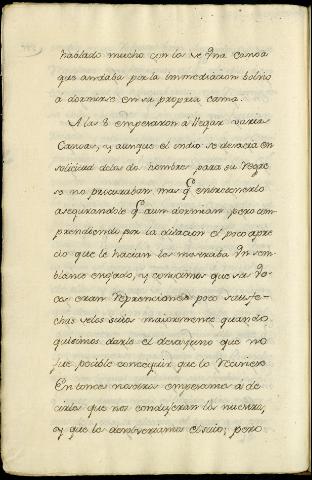 hablado mucho con los de una canoa
que andaba por la immediacion bolvió
á dormirse en su propria cama.
A las 8 empezaron á llegar varias
Canoas, y aunque el indio se desacia en
solicitud de los dos hombres para su regre
so no procuraban mas q.^e entretenerlo
asegurandole q.^e aun dormian pero com
prendiendo por la dilacion el poco apre
cio que le hacian los mostraba un sem
blante enojado, y conocimos que sus
eran reprenciones poco satisfe
chas de los suios maiormente quando
quisimos darle el desayuno que no
fue posible conseguir que lo reciviese
Entonces nosotros empezamos á de
cirles que nos condujeran los nuestros,
y que le debolveriamos el suio; pero